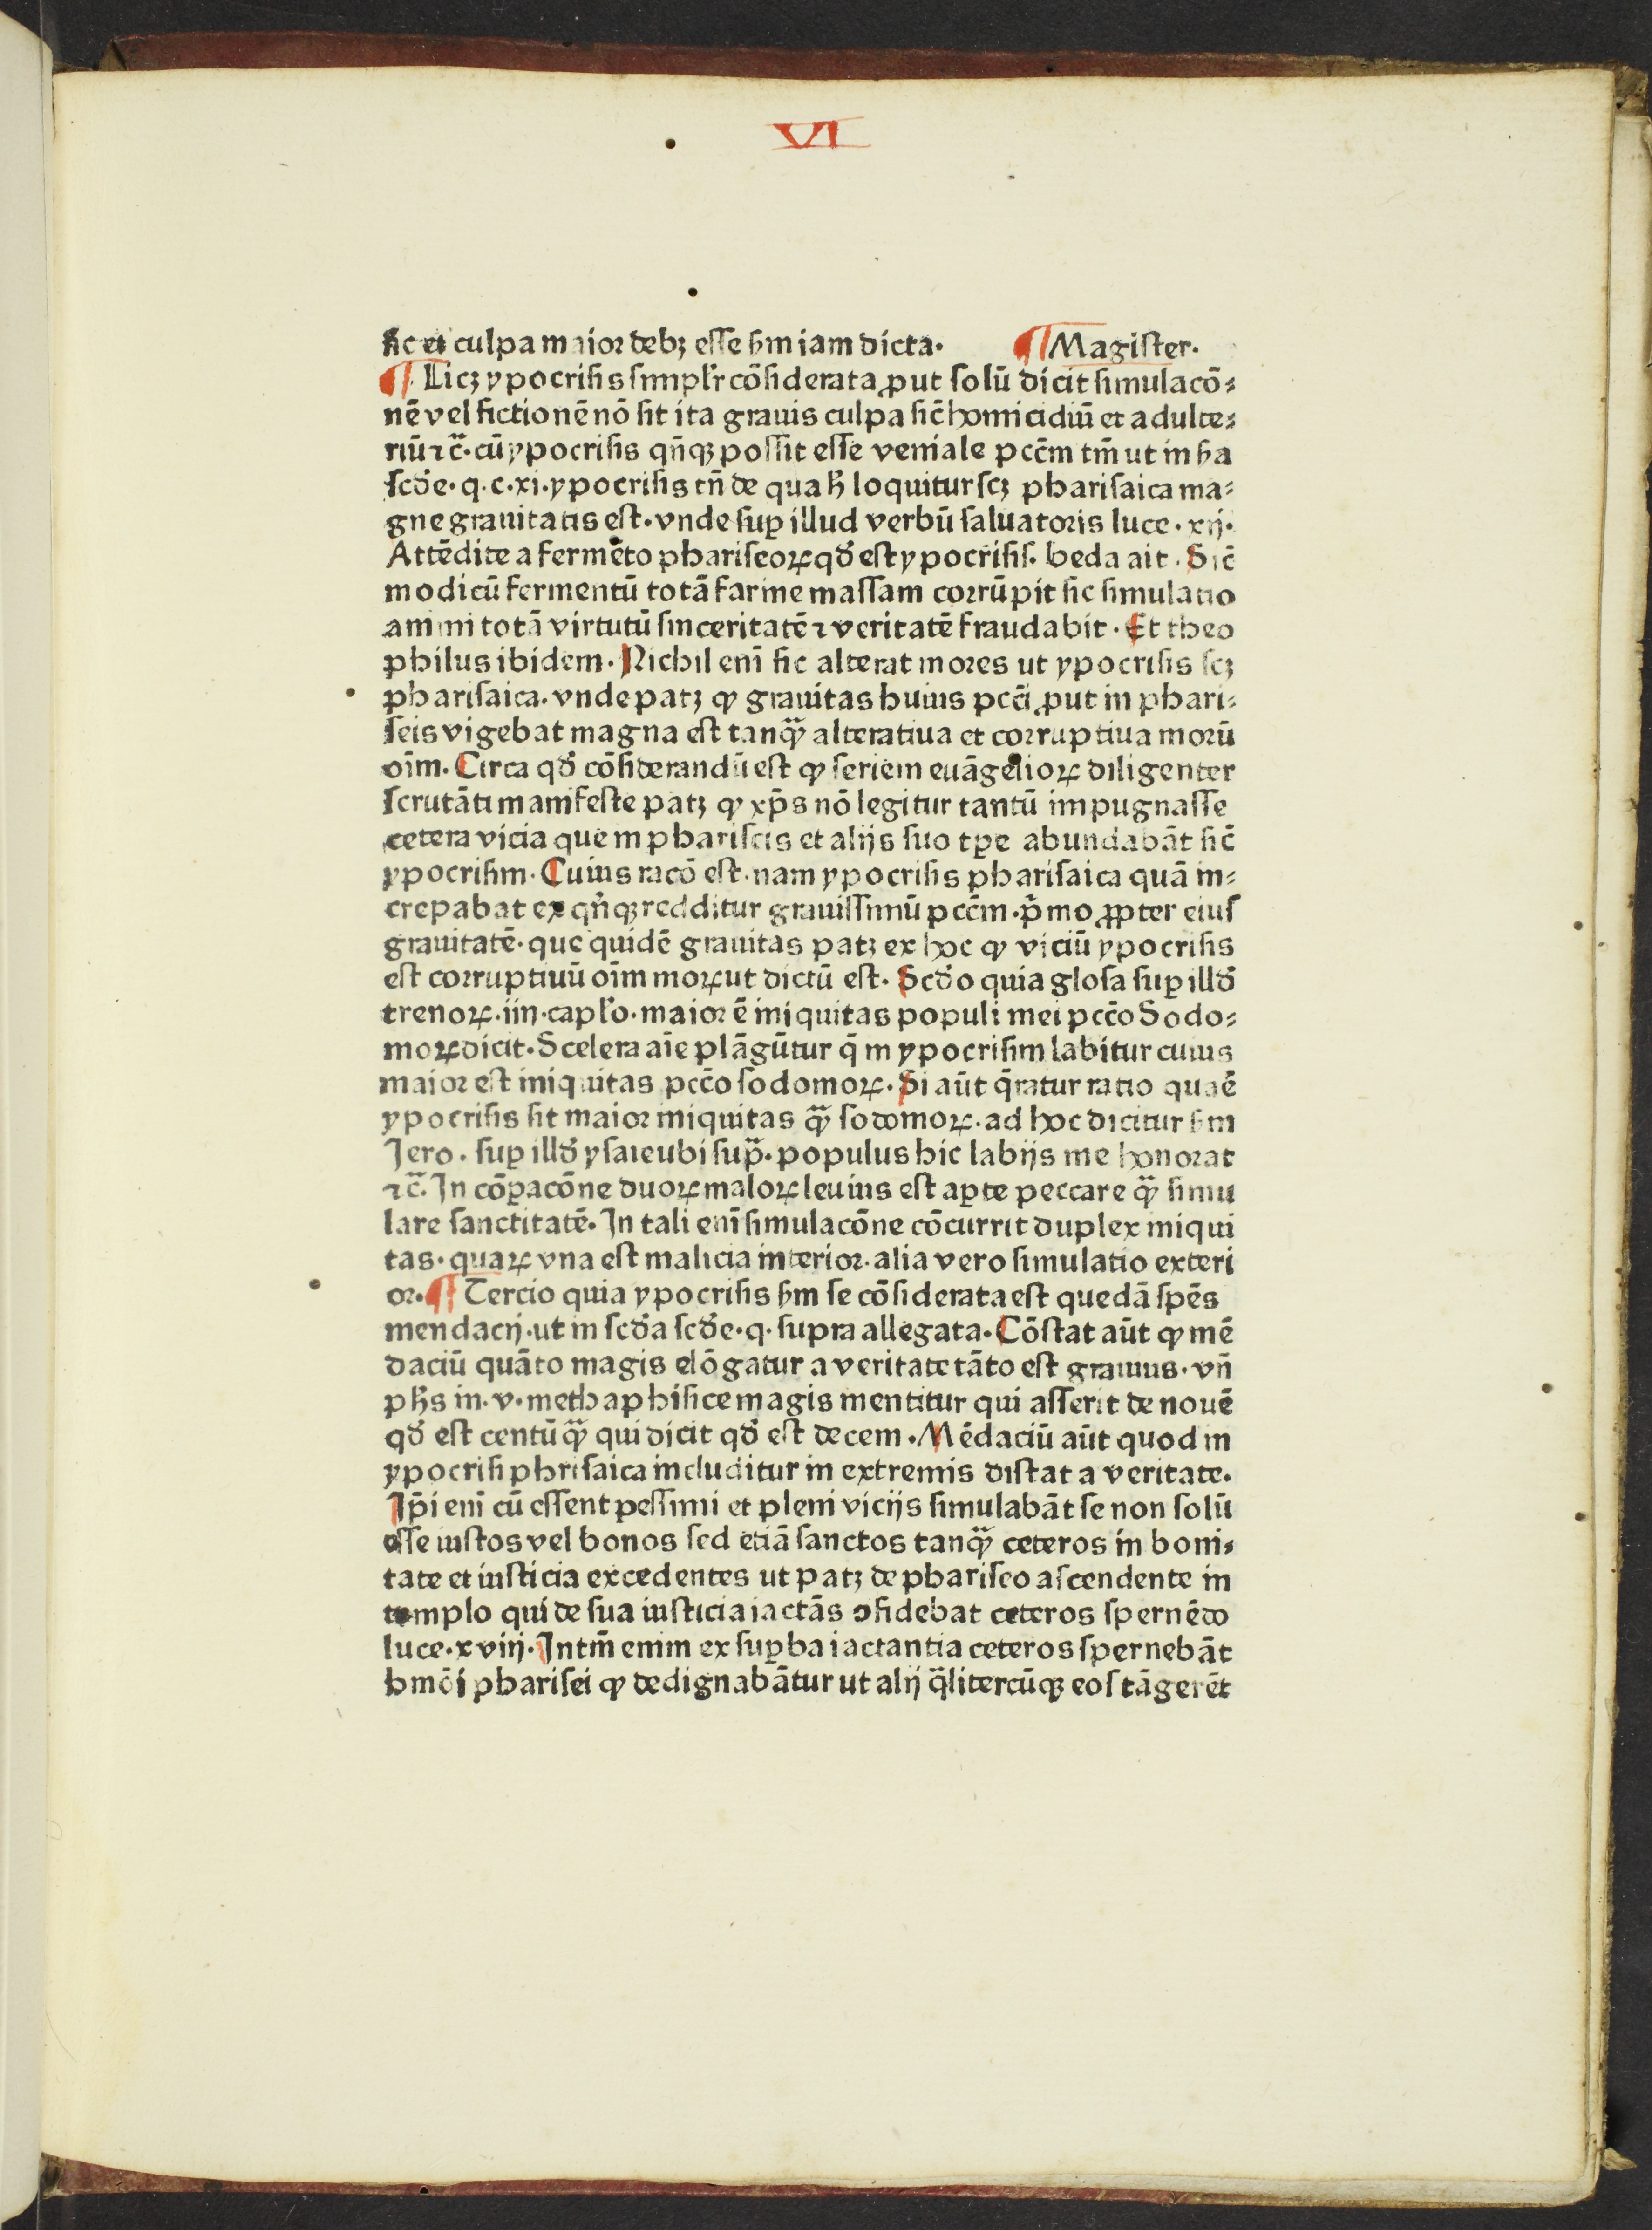 VI
sic et culpa maior debꝫ esse ẜm iam dicta. ¶ Magister.
¶ Licꝫ ypocrisis simplʼr cōsiderata ꝓut solū dicit simulacō⸗
nē vel fictionē nō sit ita grauis culpa sic̄ homicidiū et adulte⸗
riū ⁊c̄. cū ypocrisis qn̄qꝫ possit esse veniale pccm̄ tm̄ ut in ẜa
scd̓e. q. c. xi. ypocrisis tn̄ de qua h̄ loquitur scꝫ pharisaica ma⸗
gne grauitatis est. vnde suꝑ illud verbū saluatoris luce. xij.
Attēdite a fermēto phariseoꝝ qd̓ est ypocrisis. beda ait. Sic̄
modicū fermentū totā farine massam corrūpit sic simulatio
animi totā virtutū sinceritatē ⁊ veritatē fraudabit. Et theo
philus ibidem. Nichil enī sic alterat mores ut ypocrisis scꝫ
pharisaica. vnde patꝫ ꝙ grauitas huius pccī ꝓut in phari⸗
seis vigebat magna est tanqͣꝫ alteratiua et corruptiua morū
oīm. Circa qd̓ cōsiderandū est ꝙ seriem euāgelioꝝ diligenter
scrutāti manifeste patꝫ ꝙ xp̄s nō legitur tantū impugnasse
cetera vicia que in phariseis et alijs suo tꝑe abundabāt sic̄
ypocrisim. Cuius racō est. nam ypocrisis pharisaica quā in⸗
crepabat ex qn̄qꝫ redditur grauissimū pccm̄. pͥmo ꝓpter eius
grauitatē. que quidē grauitas patꝫ ex hoc ꝙ viciū ypocrisis
est corruptiuū oīm moꝝ ut dictū est. Scd̓o quia glosa suꝑ illd̓
trenoꝝ. iiij. caplʼo. maior ē iniquitas populi mei pccō Sodo⸗
moꝝ dicit. Scelera aīe plāgūtur q̄ in ypocrisim labitur cuius
maior est iniquitas pccō sodomoꝝ. Si aūt q̄ratur ratio quaē
ypocrisis sit maior iniquitas qͣꝫ sodomoꝝ. ad hoc dicitur ẜm
Jero. suꝑ illd̓ ysaie ubi supͣ. populus hic labijs me honorat
⁊c̄. In cōꝑacōne duoꝝ maloꝝ leuius est aꝑte peccare qͣꝫ simu
lare sanctitatē. In tali enī simulacōne cōcurrit duplex iniqui
tas. quaꝝ vna est malicia interior. alia vero simulatio exteri
or. ¶ Tercio quia ypocrisis ẜm se cōsiderata est quedā spēs
mendacij. ut in scd̓a scd̓e. q. supra allegata. Cōstat aūt ꝙ mē
daciū quāto magis elōgatur a veritate tāto est grauius. vn̄
ph̄s in. v. methaphisice magis mentitur qui asserit de nouē
qd̓ est centū qͣꝫ qui dicit qd̓ est decem. Mēdaciū aūt quod in
ypocrisi phrisaica includitur in extremis distat a veritate.
Ip̄i enī cū essent pessimi et pleni vicijs simulabāt se non solū
esse iustos vel bonos sed etiā sanctos tanqͣꝫ ceteros in boni⸗
tate et iusticia excedentes ut patꝫ de phariseo ascendente in
templo qui de sua iusticia iactās ↄfidebat ceteros spernēdo
luce. xviij. Intm̄ enim ex suꝑba iactantia ceteros spernebāt
hmōi pharisei ꝙ dedignabātur ut alij q̄litercūqꝫ eos tāgerēt